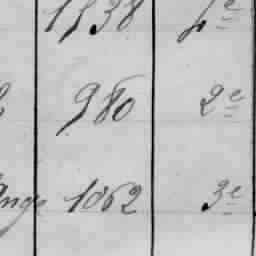 1538
980 2e
ange 1062 3e